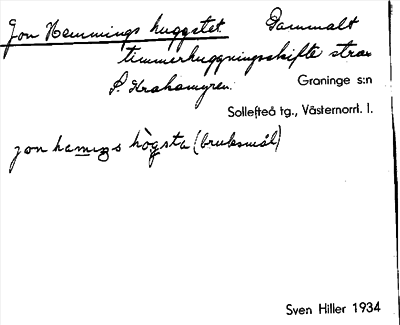 Jon Hemmings huggstet. Gammalt
timmerhuggningsskifte strax
S. Krakamyren.
Graninge s:n
Sollefteå tg., Västernorrl. l.
jon hamigs hògsta (bruksmål)
Sven Hiller 1934